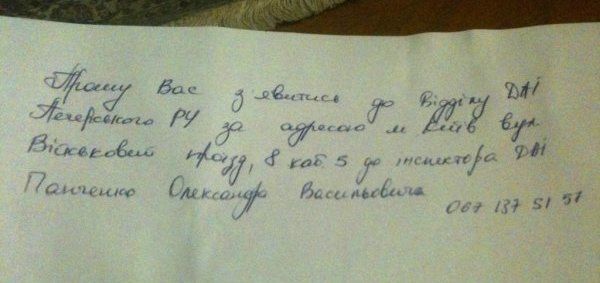 Прошу Вас з'явитись до Відділу ДАІ
Печерського РУ за адресою м Київ вул
Військовий проїзд, 8 каб. 5 до інспектора ДАІ
Панченко Олександра Васильовича
067 137 51 57